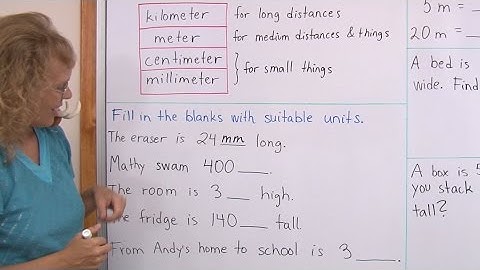 kilometer for long distances
meter for medium distances & things
centimeter
millimeter
} for small things
Fill in the blanks with suitable units.
The eraser is 24 mm long.
Mathy swam 400 ___.
The room is 3 ___ high.
fridge is 140 ___ tall.
From Andy's home to school is 3 ____.
5 m =
20 m =
A bed is
wide. Find
A box is
you stack
tall?